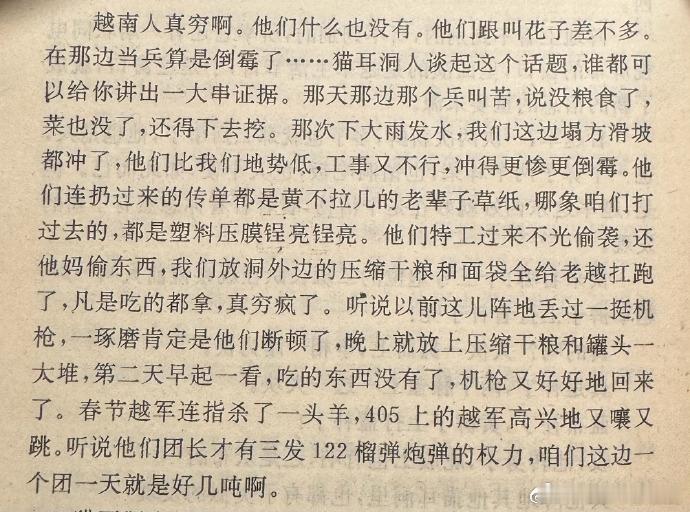 越南人真穷啊。他们什么也没有。他们跟叫花子差不多。
在那边当兵算是倒霉了……猫耳洞人谈起这个话题，谁都可
以给你讲出一大串证据。那天那边那个兵叫苦，说没粮食了，
菜也没了，还得下去挖。那次下大雨发水，我们这边塌方滑坡
都冲了，他们比我们地势低，工事又不行，冲得更惨更倒霉。他
们连扔过来的传单都是黄不拉几的老辈子草纸，哪象咱们打
过去的，都是塑料压膜锃亮锃亮。他们特工过来不光偷袭，还
他妈偷东西，我们放洞外边的压缩干粮和面袋全给老越扛跑
了，凡是吃的都拿，真穷疯了。听说以前这儿阵地丢过一挺机
枪，一琢磨肯定是他们断顿了，晚上就放上压缩干粮和罐头一
大堆，第二天早起一看，吃的东西没有了，机枪又好好地回来
了。春节越军连指杀了一头羊，405上的越军高兴地又嚷又
跳。听说他们团长才有三发122榴弹炮弹的权力，咱们这边一
个团一天就是好几吨啊。